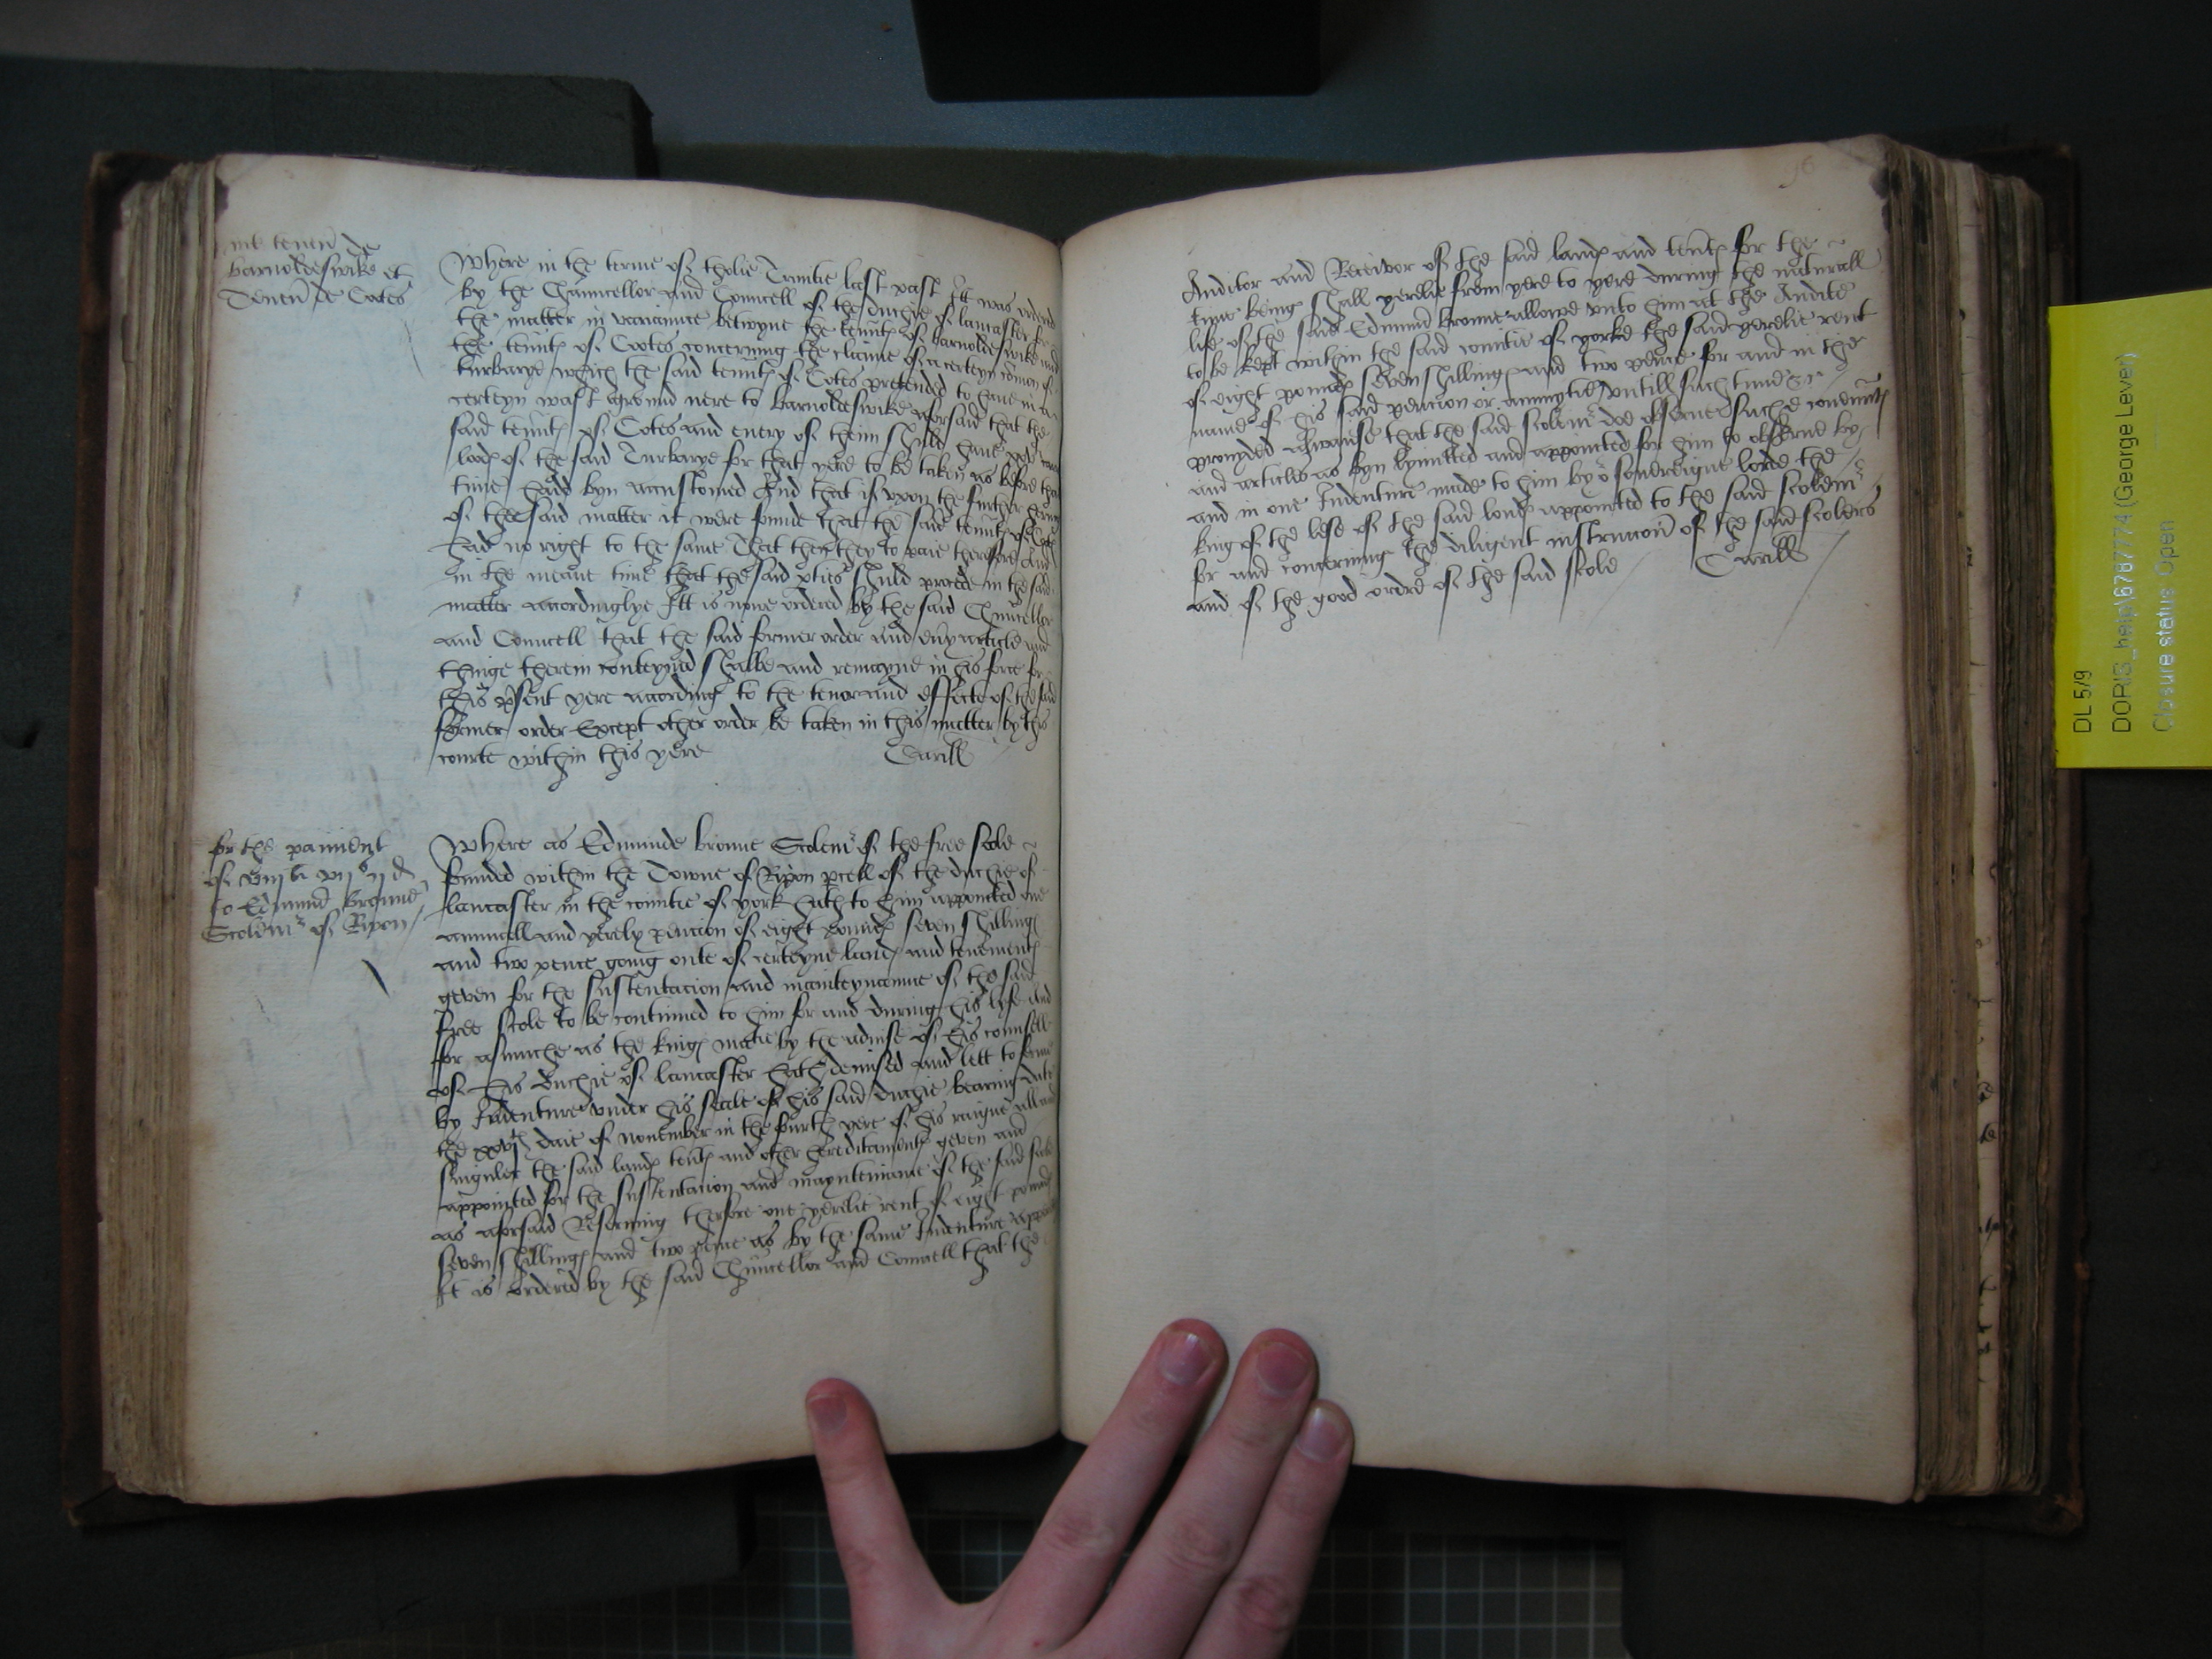 int tenen de
Barnoldeswike et
Tenen de Cotes
Where in the terme of tholie Trinitie last past Itt was ordered
by the Chauncellor and Councell of the duchie of lancaster for
the matter in variaunce betwyne the tennts of Barnoldeswike and
the tennts of Cootes concerning the clayme of a certeyn comon of
turbarye which the said tennts of Cotes pretended to have in a
certeyn wast ground nere to Barnoldeswike aforsaid that the
said tennts of Cotes and every of theim shuld have
lods of the said Turbarye for that yere to be taken as before that
time hadd byn accustomed And that if vpon the further hering
of the said matter it were founde that the said tennts of Cotes
had no right to the same That then they to paie therefore And
in the meane time that the said pties shuld procede in the said
matter accordinglye Itt is nowe ordered by the said Chauncellor
and Councell that the said former order and euy article and
thinge therein conteynd shalbe and remayne in his force for
this psent yere according to the tenor and effecte of the said
former order Except other order be taken in this matter by this
courte within this yere Caryll
for the paiment
of viij li vij s ij d
to Edmund Browne
Scolemr of Ripon
Where as Edmunde browne Scolemr of the free scole
founded within the Towne of Ripon pcell of the duchie of
lancaster in the countie of york hath to him appointed one
annuell and yerely pencion of eight pounds seven shillings
and two pence going oute of certeyne lands and tenements
geven for the sustentacion and mainteynaunce of the said
free scole to be contined to him for and during his lyfe And
for asmuche as the kings matie by the advise of his counsell
of his Duchie of lancaster hath demised and lett to ferme
by Indenture vnder his seale of his said duchie bearing date
the daie of November in the fourth yere of his raigne all and
singuler the said lands tents and other hereditaments geven and
appointed for the sustentacion and mayntenance of the said scole
as aforsaid Reserving therfore one yerelie rent of eight pounds
seven shillings and two pence as by the same Indenture
It is ordered by the said Chauncellor and Councell that the
96
Auditor and Receivor of the said lands and tents for the
time being shall yerelie from yere to yere during the naturall
life of the said Edmund browne allowe vnto him at the Audite
to be kept within the said countie of yorke the said yerelie rent
of eight pounds seven shillings and two pence for and in the
name of his said pencion or annuytie vntill such time &c
provyded alwaise that the said scolemr doe observe suche covennts
and articles as byn lymitted and appointed for him to observe by
and in one Indenture made to him by or sovereigne lorde the
king of the lese of the said londs appointed to the said scolemr
for and concerning the diligent instruccion of the said scolers
and of the good ordre of the said scole Caryll
DL 5/9
DORIS_help\6787774 (George Lever)
Closure status: Open